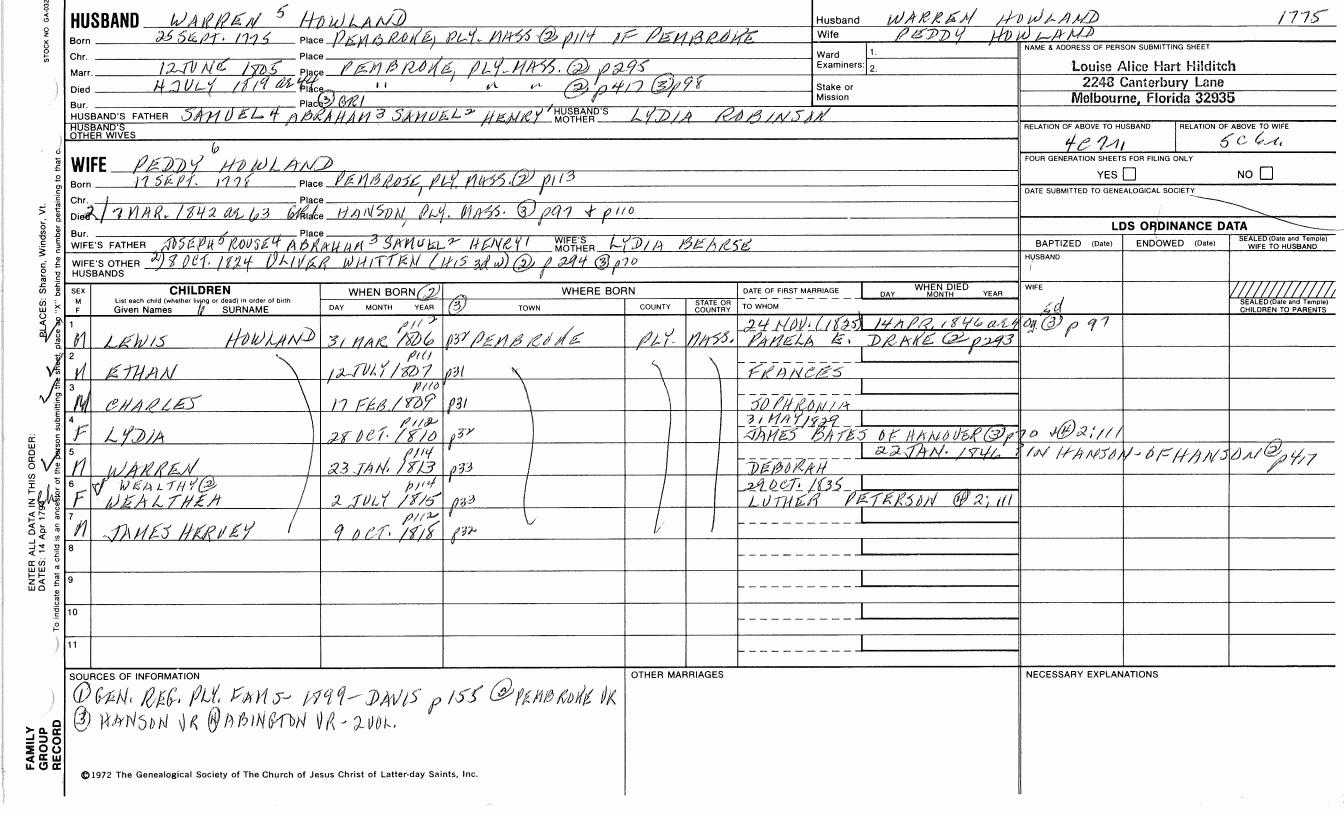 STOCK NO GA-032
HUSBAND WARREN 5 HOWLAND
Born 25 SEPT. 1775 Place PEMBROKE, PLY. MASS. (2) p114 OF PEMBROKE
Chr. Place
Marr. 12 JUNE 1805 Place PEMBROKE, PLY. MASS. (2) p295
Died 4 JULY 1819 ae 44 Place " " " (2) p417 (3) p98
Bur. Place (3) GR1
HUSBAND'S FATHER SAMUEL 4 ABRAHAM 3 SAMUEL 2 HENRY 1 HUSBAND'S MOTHER LYDIA ROBINSON
HUSBAND'S OTHER WIVES
Husband WARREN HOWLAND 1775
Wife PEDDY HOWLAND
Ward Examiners: 1.
2.
Stake or Mission
NAME & ADDRESS OF PERSON SUBMITTING SHEET
Louise Alice Hart Hilditch
2248 Canterbury Lane
Melbourne, Florida 32935
RELATION OF ABOVE TO HUSBAND RELATION OF ABOVE TO WIFE
FOUR GENERATION SHEETS FOR FILING ONLY
YES NO
DATE SUBMITTED TO GENEALOGICAL SOCIETY
WIFE PEDDY 6 HOWLAND
Born 17 SEPT. 1778 Place PEMBROSE, PLY. MASS. (2) p113
Chr. Place
Died 2/7 MAR. 1842 ae 63 GR1 Place HANSON, PLY. MASS. (3) p97 + p110
Bur. Place
WIFE'S FATHER JOSEPH 5 ROUSE 4 ABRAHAM 3 SAMUEL 2 HENRY 1 WIFE'S MOTHER LYDIA BEARSE
WIFE'S OTHER HUSBANDS 2) 8 OCT. 1824 OLIVER WHITTEN (HIS 3d W) (2) p 294 (3) p70
LDS ORDINANCE DATA
BAPTIZED (Date) ENDOWED (Date) SEALED (Date and Temple) WIFE TO HUSBAND
HUSBAND
WIFE
SEALED (Date and Temple) CHILDREN TO PARENTS
SEX M F CHILDREN List each child (whether living or dead) in order of birth Given Names SURNAME
WHEN BORN (2) DAY MONTH YEAR
WHERE BORN (3) TOWN COUNTY STATE OR COUNTRY
DATE OF FIRST MARRIAGE TO WHOM
WHEN DIED DAY MONTH YEAR
p112 24 NOV. (1825) 14 APR. 1846 (3) p 97
1 M LEWIS HOWLAND 31 MAR 1806 p32 PEMBROKE PLY. MASS. PAMELA E. DRAKE (2) p293
p111
2 M ETHAN 12 JULY 1807 p31 FRANCES
p110
3 M CHARLES 17 FEB. 1809 p31 SOPHRONIA
p112 31 MAY 1829
4 F LYDIA 28 OCT. 1810 p32 JAMES BATES OF HANOVER (3) p70 + (4) 2;111
p114 22 JAN. 1846 IN HANSON-OF HANSON (2) p417
5 M WARREN 23 JAN. 1813 p33 DEBORAH
WEALTHY (2) p114 29 OCT. 1835
6 F WEALTHEA 2 JULY 1815 p33 LUTHER PETERSON (4) 2;111
p112
7 M JAMES HERVEY 9 OCT. 1818 p32
8
9
10
11
SOURCES OF INFORMATION
(1) GEN. REG. PLY. FAMS- 1799- DAVIS p 155 (2) PEMBROKE VR
(3) HANSON VR (4) ABINGTON VR - 2 VOL.
OTHER MARRIAGES
NECESSARY EXPLANATIONS
©1972 The Genealogical Society of The Church of Jesus Christ of Latter-day Saints, Inc.
FAMILY GROUP RECORD
ENTER ALL DATA IN THIS ORDER:
DATES: 14 Apr 1794
PLACES: Sharon, Windsor, Vt.